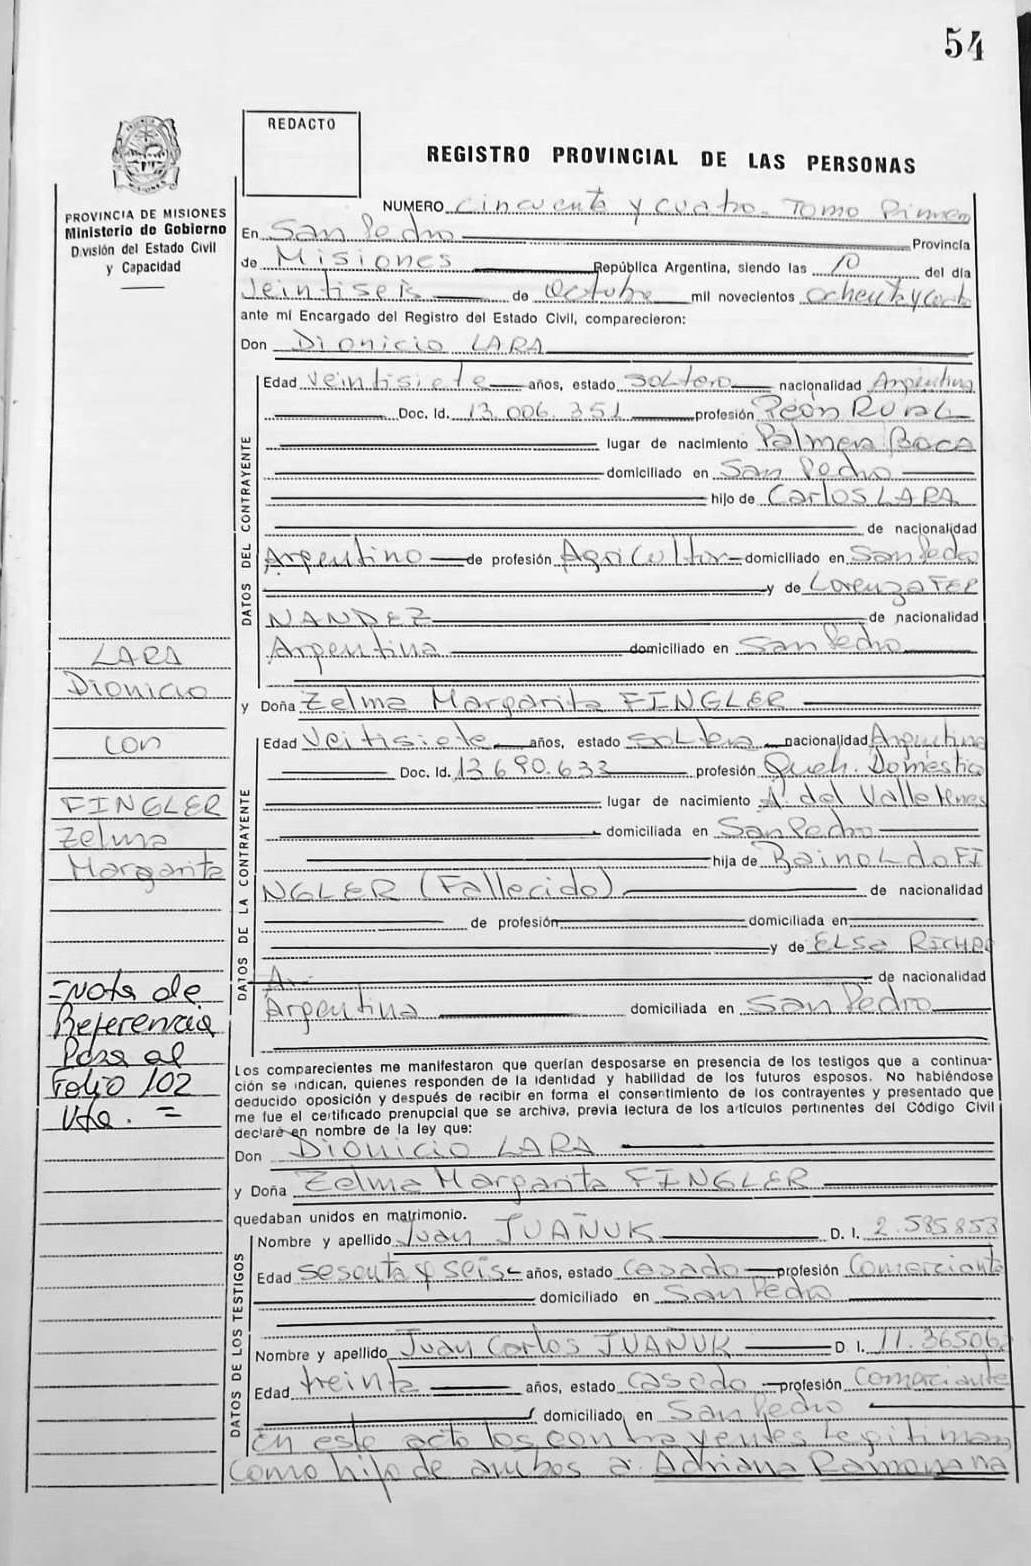 54
REDACTO
REGISTRO PROVINCIAL DE LAS PERSONAS
PROVINCIA DE MISIONES
Ministerio de Gobierno
División del Estado Civil
y Capacidad
NUMERO cincuenta y cuatro - Tomo Primero
En San Pedro Provincia
de Misiones República Argentina, siendo las 10 del día
Veintiseis de Octubre mil novecientos ochenta y
ante mi Encargado del Registro del Estado Civil, comparecieron:
Don Dionicio LARA
DATOS DEL CONTRAYENTE
Edad veintisiete años, estado soltero nacionalidad Argentina
Doc. Id. 13.006.351 profesión Peón RURAL
lugar de nacimiento Palmera Boca
domiciliado en San Pedro
hijo de Carlos LARA
de nacionalidad
Argentino de profesión Agricultor domiciliado en San Pedro
y de Lorenza FER
NANDEZ de nacionalidad
Argentina domiciliado en San Pedro
y Doña Zelma Margarita FINGLER
DATOS DE LA CONTRAYENTE
Edad Veitisiete años, estado soltera nacionalidad Argentina
Doc. Id. 13.690.633 profesión Queh. Domestico
lugar de nacimiento A. del Valle
domiciliada en San Pedro
hija de Rainoldo FI
NGLER (Fallecido) de nacionalidad
de profesión domiciliada en
y de ELSA
A.- de nacionalidad
Argentina domiciliada en San Pedro
Los comparecientes me manifestaron que querían desposarse en presencia de los testigos que a continua-
ción se indican, quienes responden de la identidad y habilidad de los futuros esposos. No habiéndose
deducido oposición y después de recibir en forma el consentimiento de los contrayentes y presentado que
me fue el certificado prenupcial que se archiva, previa lectura de los artículos pertinentes del Código Civil
declaré en nombre de la ley que:
Don Dionicio LARA
y Doña Zelma Margarita FINGLER
quedaban unidos en matrimonio.
DATOS DE LOS TESTIGOS
Nombre y apellido Juan IUAÑUK D. I. 2.585.858
Edad sesenta y seis años, estado casado profesión Comerciante
domiciliado en San Pedro
Nombre y apellido Juan Carlos IUAÑUK D. I. 11.365.06
Edad treinta años, estado casado profesión comerciante
domiciliado en San Pedro
En este acto los contrayentes legitiman
como hijo de ambos a: Adriana Ramona
LARA
Dionicio
con
FINGLER
Zelma
Margarita
=Nota de
Referencia
Pasa al
Folio 102
Vta. =